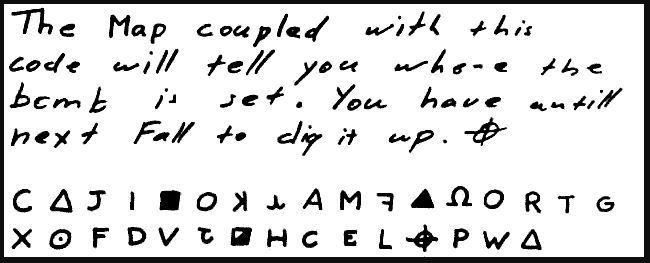 The Map coupled with this
code will tell you where the
bomb is set. You have untill
next Fall to dig it up. ⌖
C Δ J I ■ O ꓘ ⅄ A M ꟻ ▲ Ω O R T G
X ⊙ F D V Ʇ ◪ H C E L ⌖ P W Δ